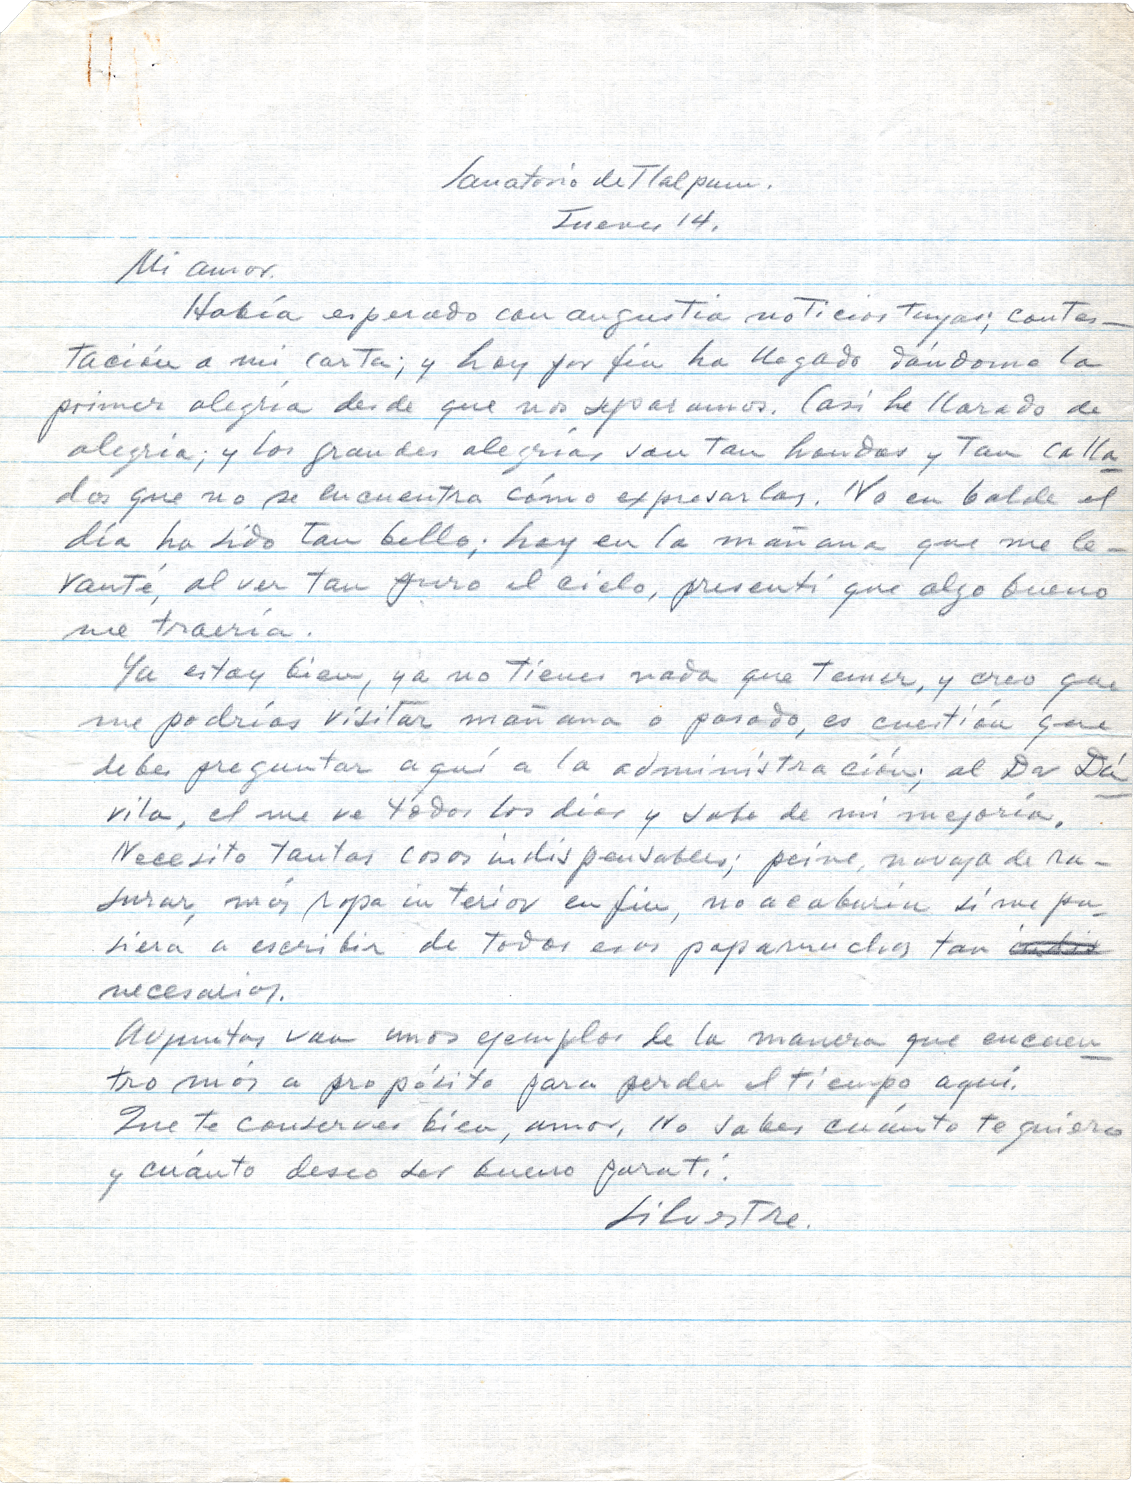 Sanatorio de Tlalpam.
Jueves 14.
Mi amor.
Había esperado con angustia noticias tuyas; contes-
tación a mi carta; y hoy por fin ha llegado dándome la
primer alegría desde que nos separamos. Casi he llorado de
alegría; y las grandes alegrías son tan hondas y tan calla-
das que no se encuentra cómo expresarlas. No en balde el
día ha sido tan bello; hoy en la mañana que me le-
vanté, al ver tan puro el cielo, presentí que algo bueno
me traería.
Ya estoy bien, ya no tienes nada que temer, y creo que
me podrías visitar mañana o pasado, es cuestión que
debes preguntar aquí a la administración; al Dr Dá
vila, el me ve todos los días y sabe de mi mejoría.
Necesito tantas cosas indispensables; peine, navaja de ra-
surar, más ropa interior en fin, no acabaría si me pu-
siera a escribir de todos esos paparruchas tan
necesarios.
Adjuntas van unos ejemplos de la manera que encuen-
tro más a propósito para perder el tiempo aquí.
Que te conserves bien, amor. No sabes cuánto te quiero
y cuánto deseo ser bueno para tí.
Silvestre.